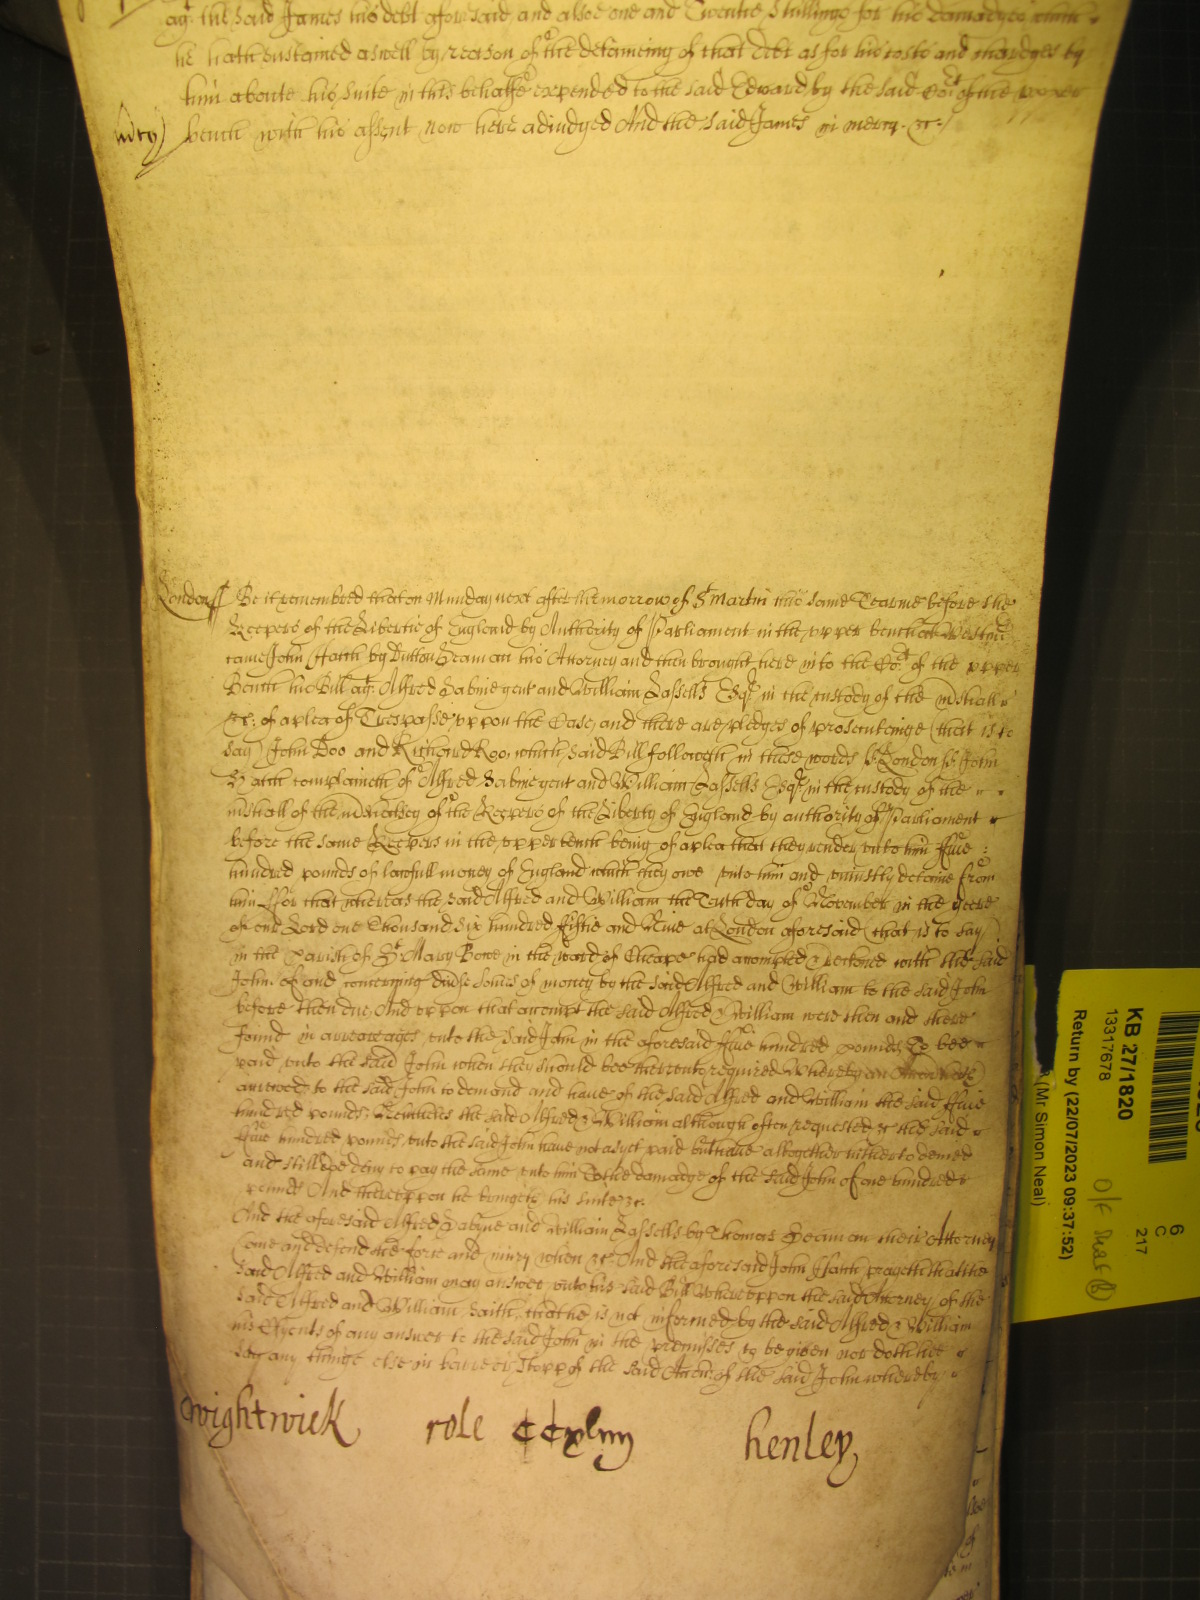 agt the said James his debt aforesaid and alsoe one and Twentie Shillings for his damadges which
he hath sustained aswell by reason of the deteineing of that debt as for his costs and chardges by
him aboute his suite in this behalfe expended to the said Edward by the said Cort of the upper
Bench with his assent now here adiudged And the said James in mercy &c
mcy)
London ss Be it remembred that on Munday next after the morrow of St Martin this same Tearme before the
Keepers of the Libertie of England by Authority of Parliament in the upper bench at Westmr
came John Hatch by Dutton Seaman his Attorney and then brought here into the Cort of the upper
Bench his Bill agt Alfred Sabine gent and William Lassells Esqr in the custody of the mshall
&c of a plea of Trespasse uppon the Case and there are pledges of prosecuteinge (that is to
say) John Doo and Richard Roo, which said Bill followeth in these words ss London ss John
Hatch complaineth of Alfred Sabine gent and William Lassells Esqr in the custody of the
mshall of the marshalsey of the Keepers of the Liberty of England by authority of Parliament
before the same Keepers in the upper bench being of a plea that they render unto him ffive
hundred pounds of lawfull money of England which they owe unto him and uniustly deteine from
him ffor that whereas the said Alfred and William the Tenth day of November in the yeere
of our Lord one Thousand six hundred fiftie and Nine at London aforesaid (that is to say)
in the Parish of St Mary Bowe in the ward of Cheape had accompted & reckoned with the said
John of and concerning divse somes of money by the said Alfred and William to the said John
before then due And uppon that accompt the said Alfred & William were then and there
found in arrearages unto the said John in the aforesaid ffive hundred pounds To bee
paid unto the said John when they should bee thereunto required Whereby an Accon
accrued to the said John to demand and have of the said Alfred and William the said ffive
hundred pounds Neverthelesse the said Alfred & William although often requested &c the said
ffive hundred pounds unto the said John have not as yet paid but have altogether hitherto denied
and still doe deny to pay the same unto him To the damadge of the said John of one hundred
pounds And thereuppon he bringeth his suite &c
And the aforesaid Alfred Sabyne and William Lassells by Thomas Seaman their Attorney
Come and defend the force and iniury when &c And the aforesaid John Hatch prayeth that the
said Alfred and William may answer unto his said Bill Whereuppon the said Attorney of the
said Alfred and William saith that he is not informed by the said Alfred & William
his Clyents of any answer to the said John in the premisses to be given nor doth hee
say any thinge else in barre or stopp of the said Accon of the said John whereby
wightwick role henley
KB 27/1820
13317678
Return by (22/07/2023 09:37:52)
(Mr Simon Neal)
6
C
217